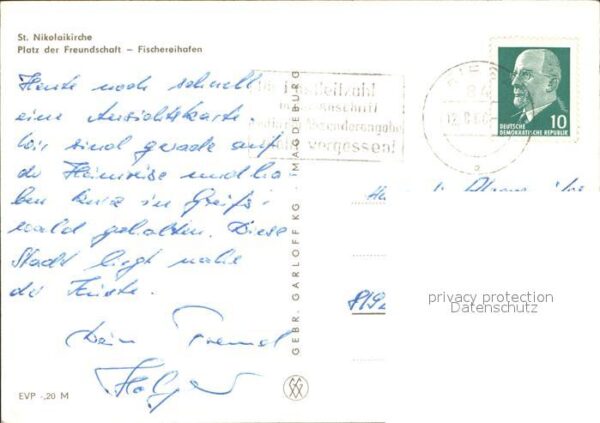 St. Nikolaikirche
Platz der Freundschaft – Fischereihafen
Heute noch schnell
eine Ansichtskarte
Wir sind gerade auf
der Heimreise und ha
ben kurz in Greifs
wald gehalten. Diese
Stadt liegt nahe
der Küste.
Dein Freund
Holger
EVP -,20 M
GEBR. GARLOFF KG · MAGDEBURG
Postleitzahl
Anschrift
Absenderangabe
vergessen
DEUTSCHE
DEMOKRATISCHE REPUBLIK
10
privacy protection
Datenschutz